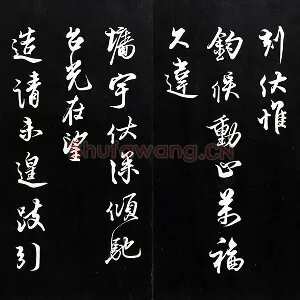 刻伏惟
鈞候動止萬福
久違
墻宇伏深傾馳
台光在望
造請未遑跂引
shufawang.CN